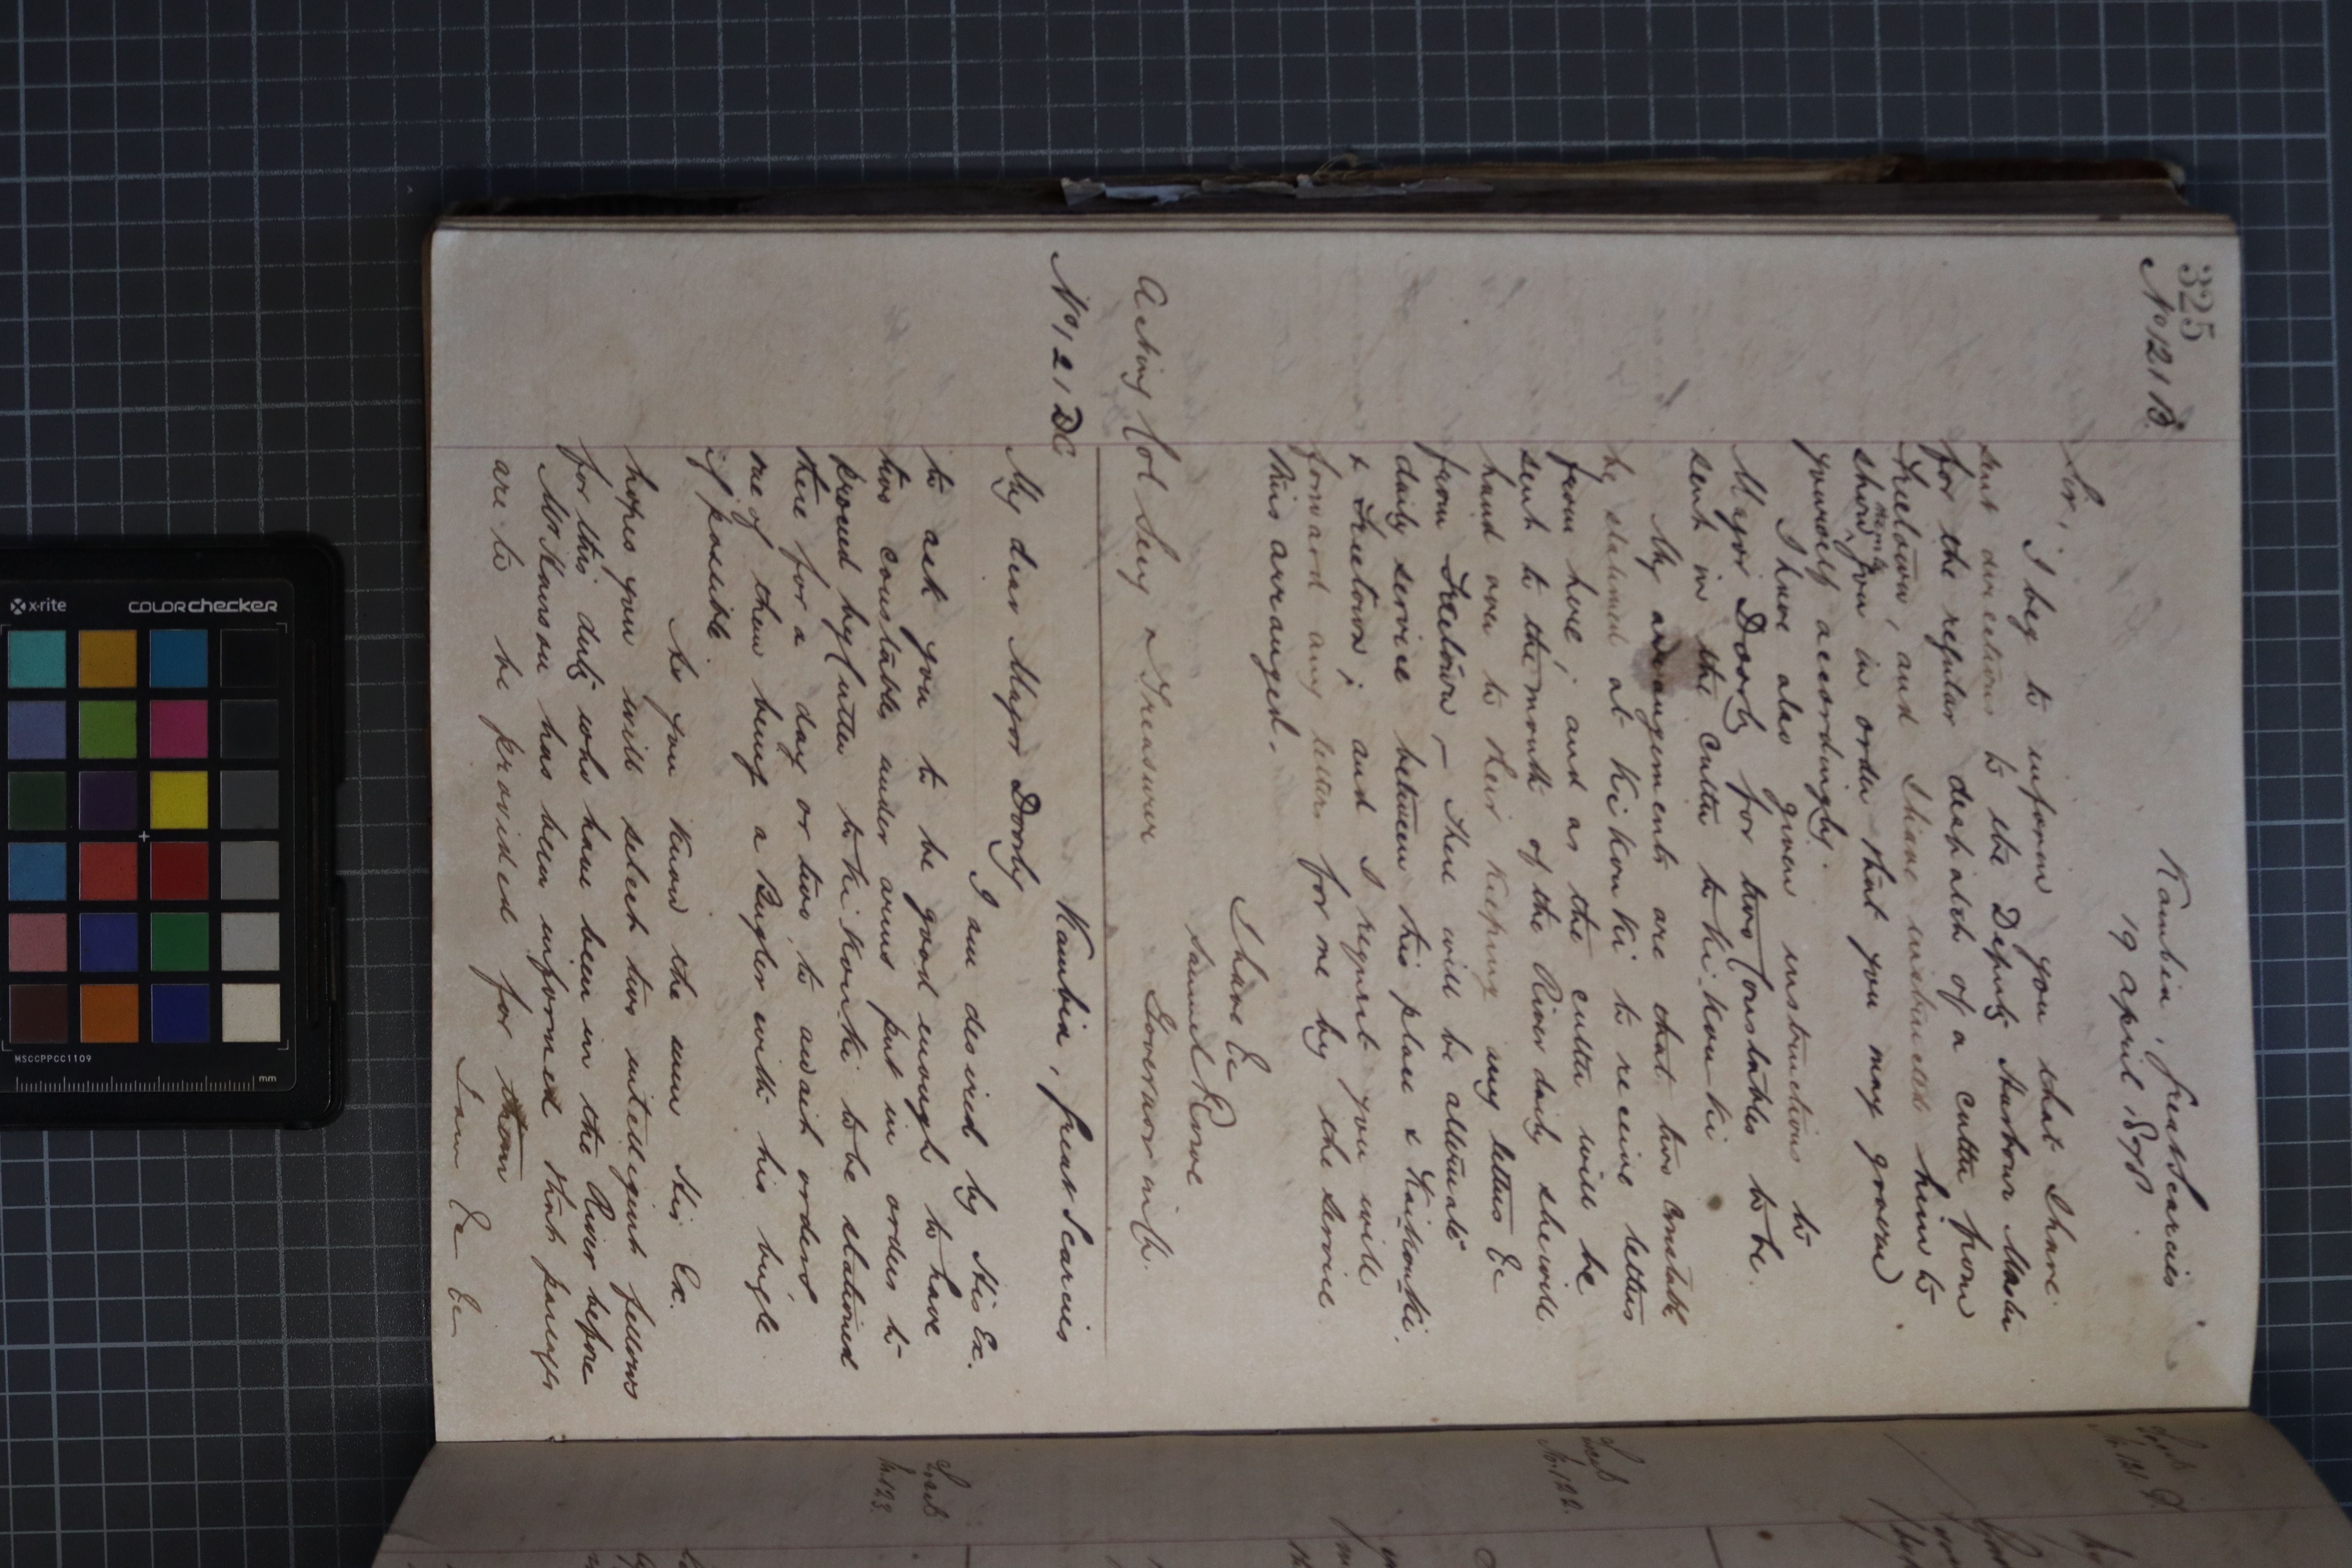 325
No 121 B.
Kambia, Great Scarcies
19 April 1878.
Sir,
I beg to inform you that I have
sent directions to the Deputy Harbour Master
for the regular despatch of a cutter from
Freetown, and I have instructed him to
show memo to you in order that you may govern
yourself accordingly.
I have also given instructions to
Major Doorly for two Constables to be
sent in the cutter to Ki Kon ki
My arrangements are that two constable
be stationed at Ki Kon Ki to receive letters
from here; and as the cutter will be
sent to the mouth of the River daily she will
hand over to their keeping any letters &c
from Freetown – There will be alternate
daily service between this place & Kaikonki.
& Freetown; and I request you will
forward any letters for me by the service
this arranged.
I have &c
Samuel Rowe
Governor in Ch.
Acting Col Secy & Treasurer
No 121 DC
Kambia, Great Scarcies
My dear Major Doorly
I am desired by His Ex.
to ask you to be good enough to have
two constables under arms put in orders to
proceed by Cutter to Ki Kon Ki to be stationed
there for a day or two, to await orders
one of them being a Bugler with his bugle
if possible
As you know the men His Ex.
hopes you will select two intelligent fellows
for this duty who have been in the River before
Mr Hanson has been informed that passages
are to be provided for them
I am &c &c
Sent
No 121 D.
Sent
No 122.
Sent
No 123.